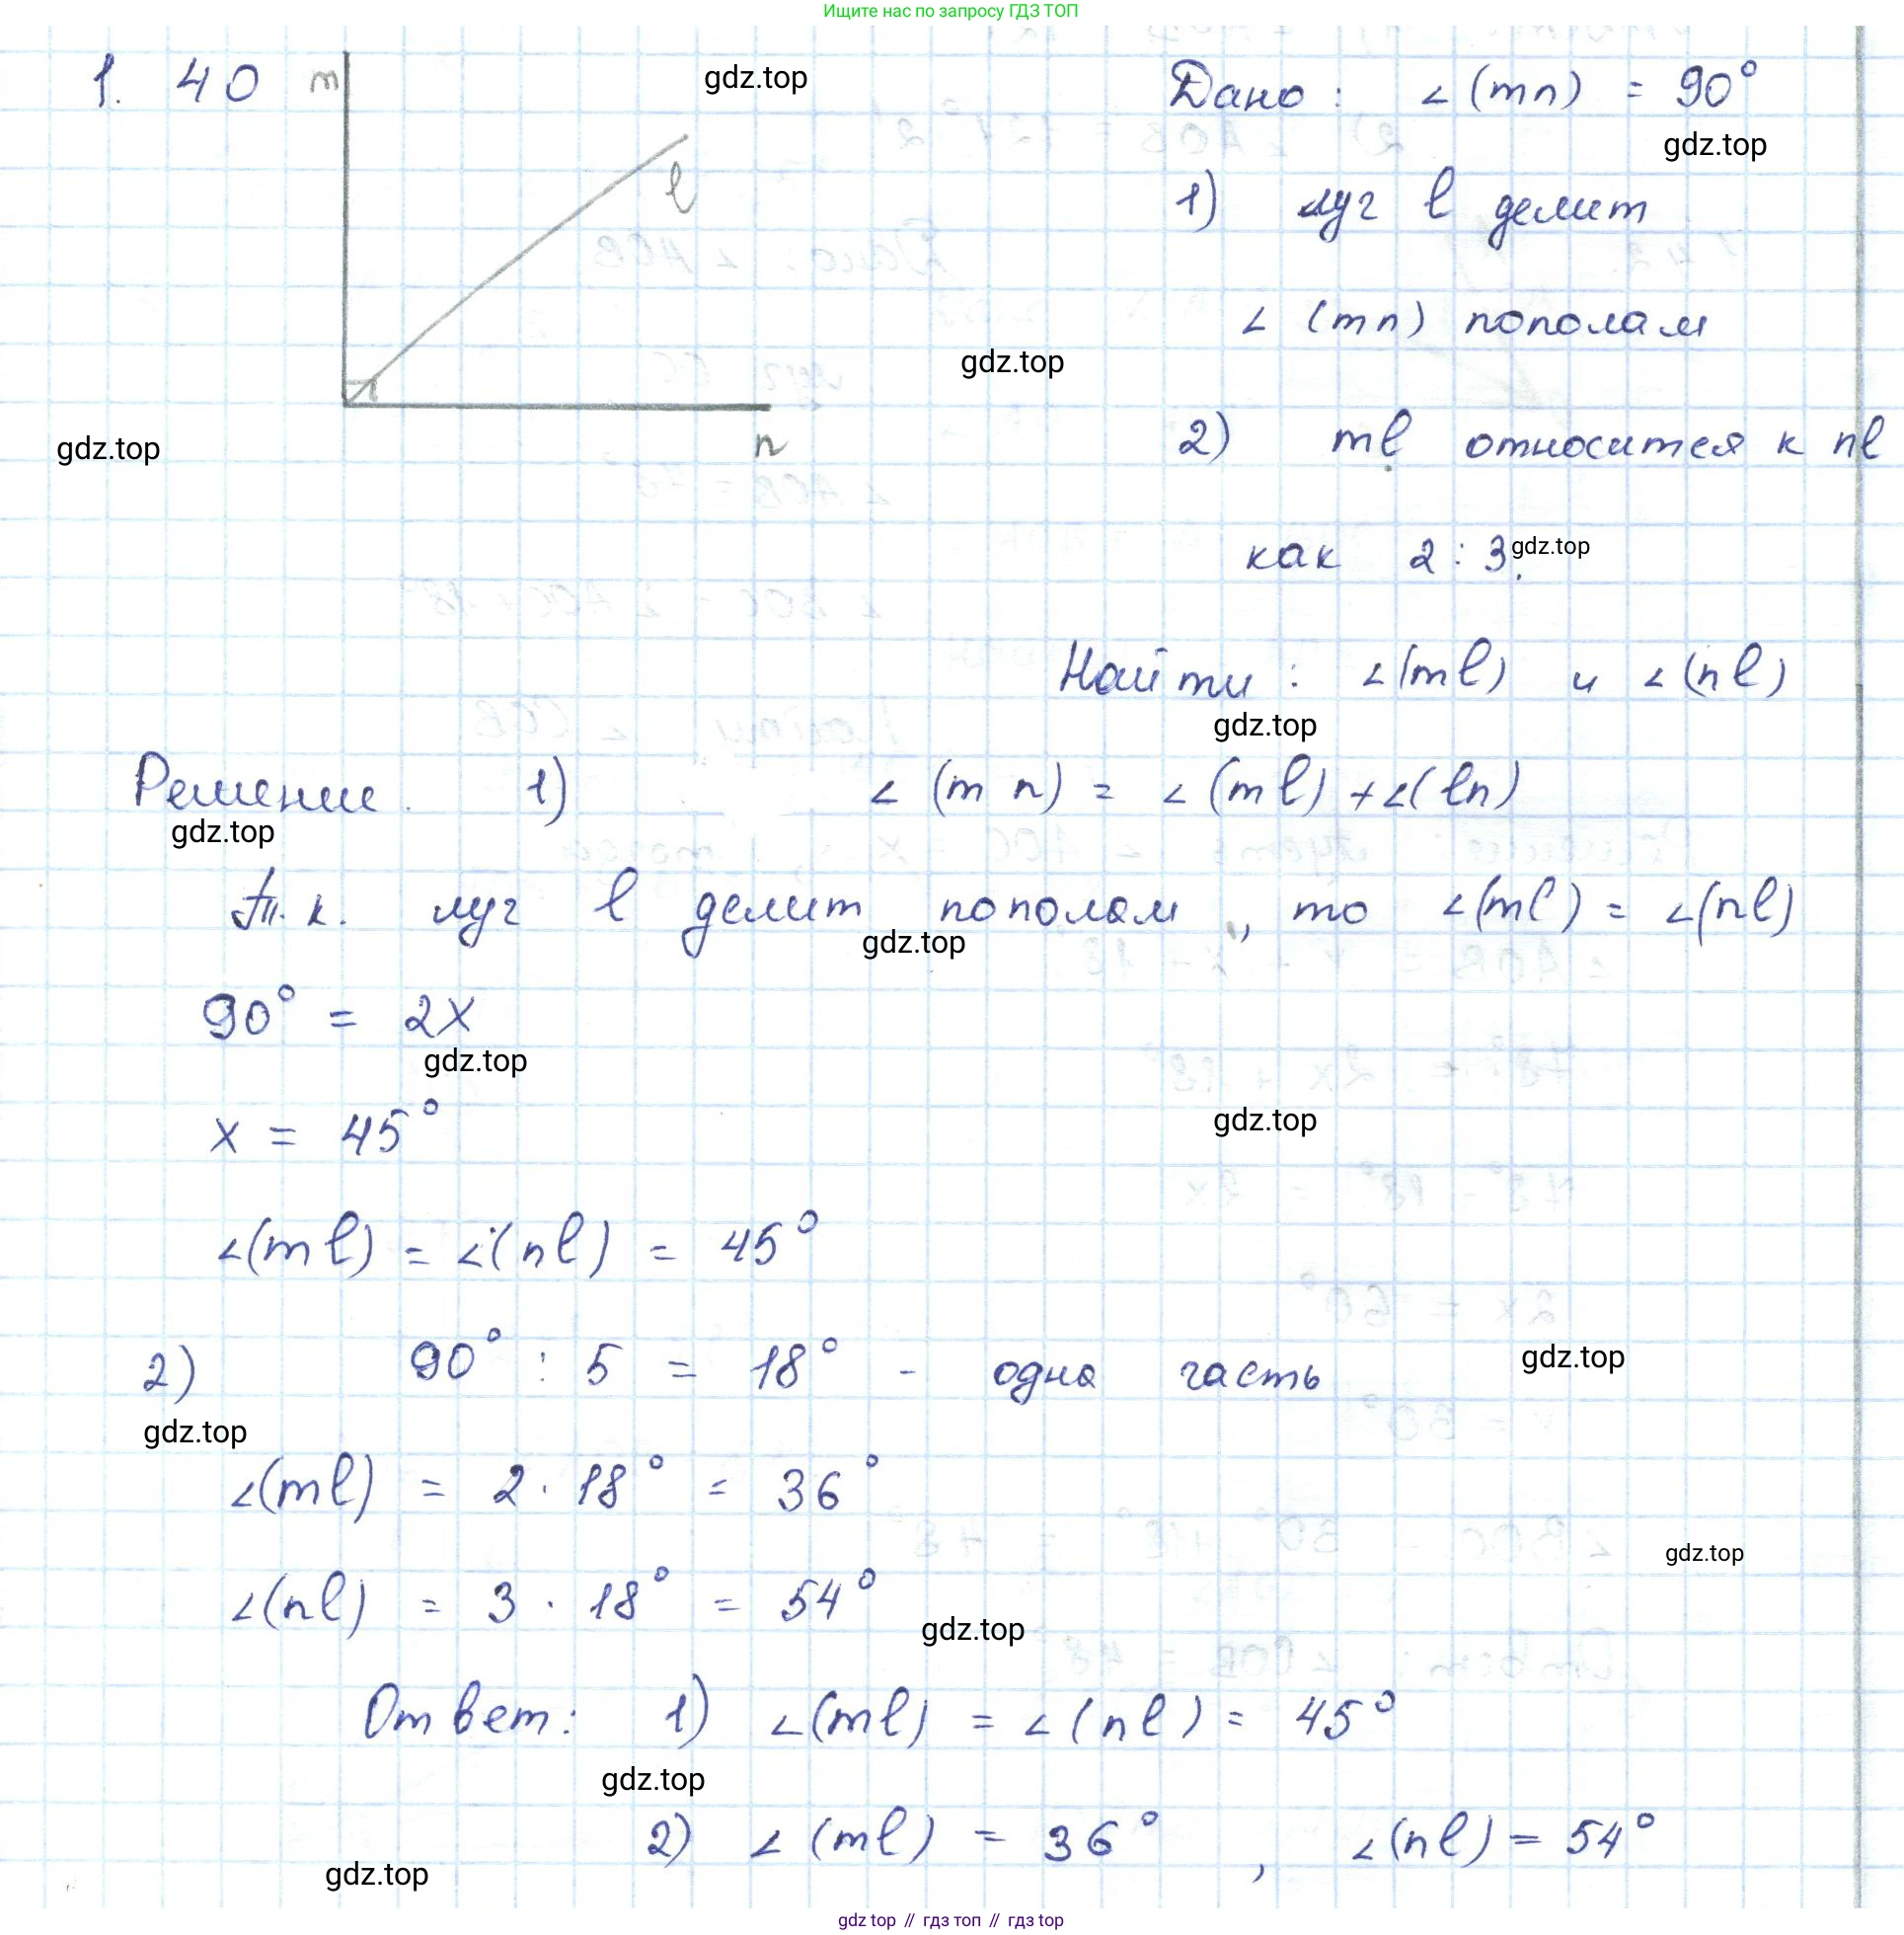 Ищите нас по запросу ГДЗ ТОП
1. 40
m
gdz.top
Дано: ∠(mn) = 90°
gdz.top
l
1) луч l делит
∠(mn) пополам
gdz.top
n
gdz.top
2) ml относится к nl
как 2 : 3.
gdz.top
Найти: ∠(ml) и ∠(nl)
gdz.top
Решение. 1) ∠(mn) = ∠(ml) + ∠(ln)
gdz.top
Т.к. луч l делит пополам, то ∠(ml) = ∠(nl)
gdz.top
90° = 2x
gdz.top
x = 45°
gdz.top
∠(ml) = ∠(nl) = 45°
2) 90° : 5 = 18° - одна часть
gdz.top
gdz.top
∠(ml) = 2 · 18° = 36°
gdz.top
∠(nl) = 3 · 18° = 54°
gdz.top
Ответ: 1) ∠(ml) = ∠(nl) = 45°
gdz.top
2) ∠(ml) = 36°, ∠(nl) = 54°
gdz.top
gdz top // гдз топ // гдз top